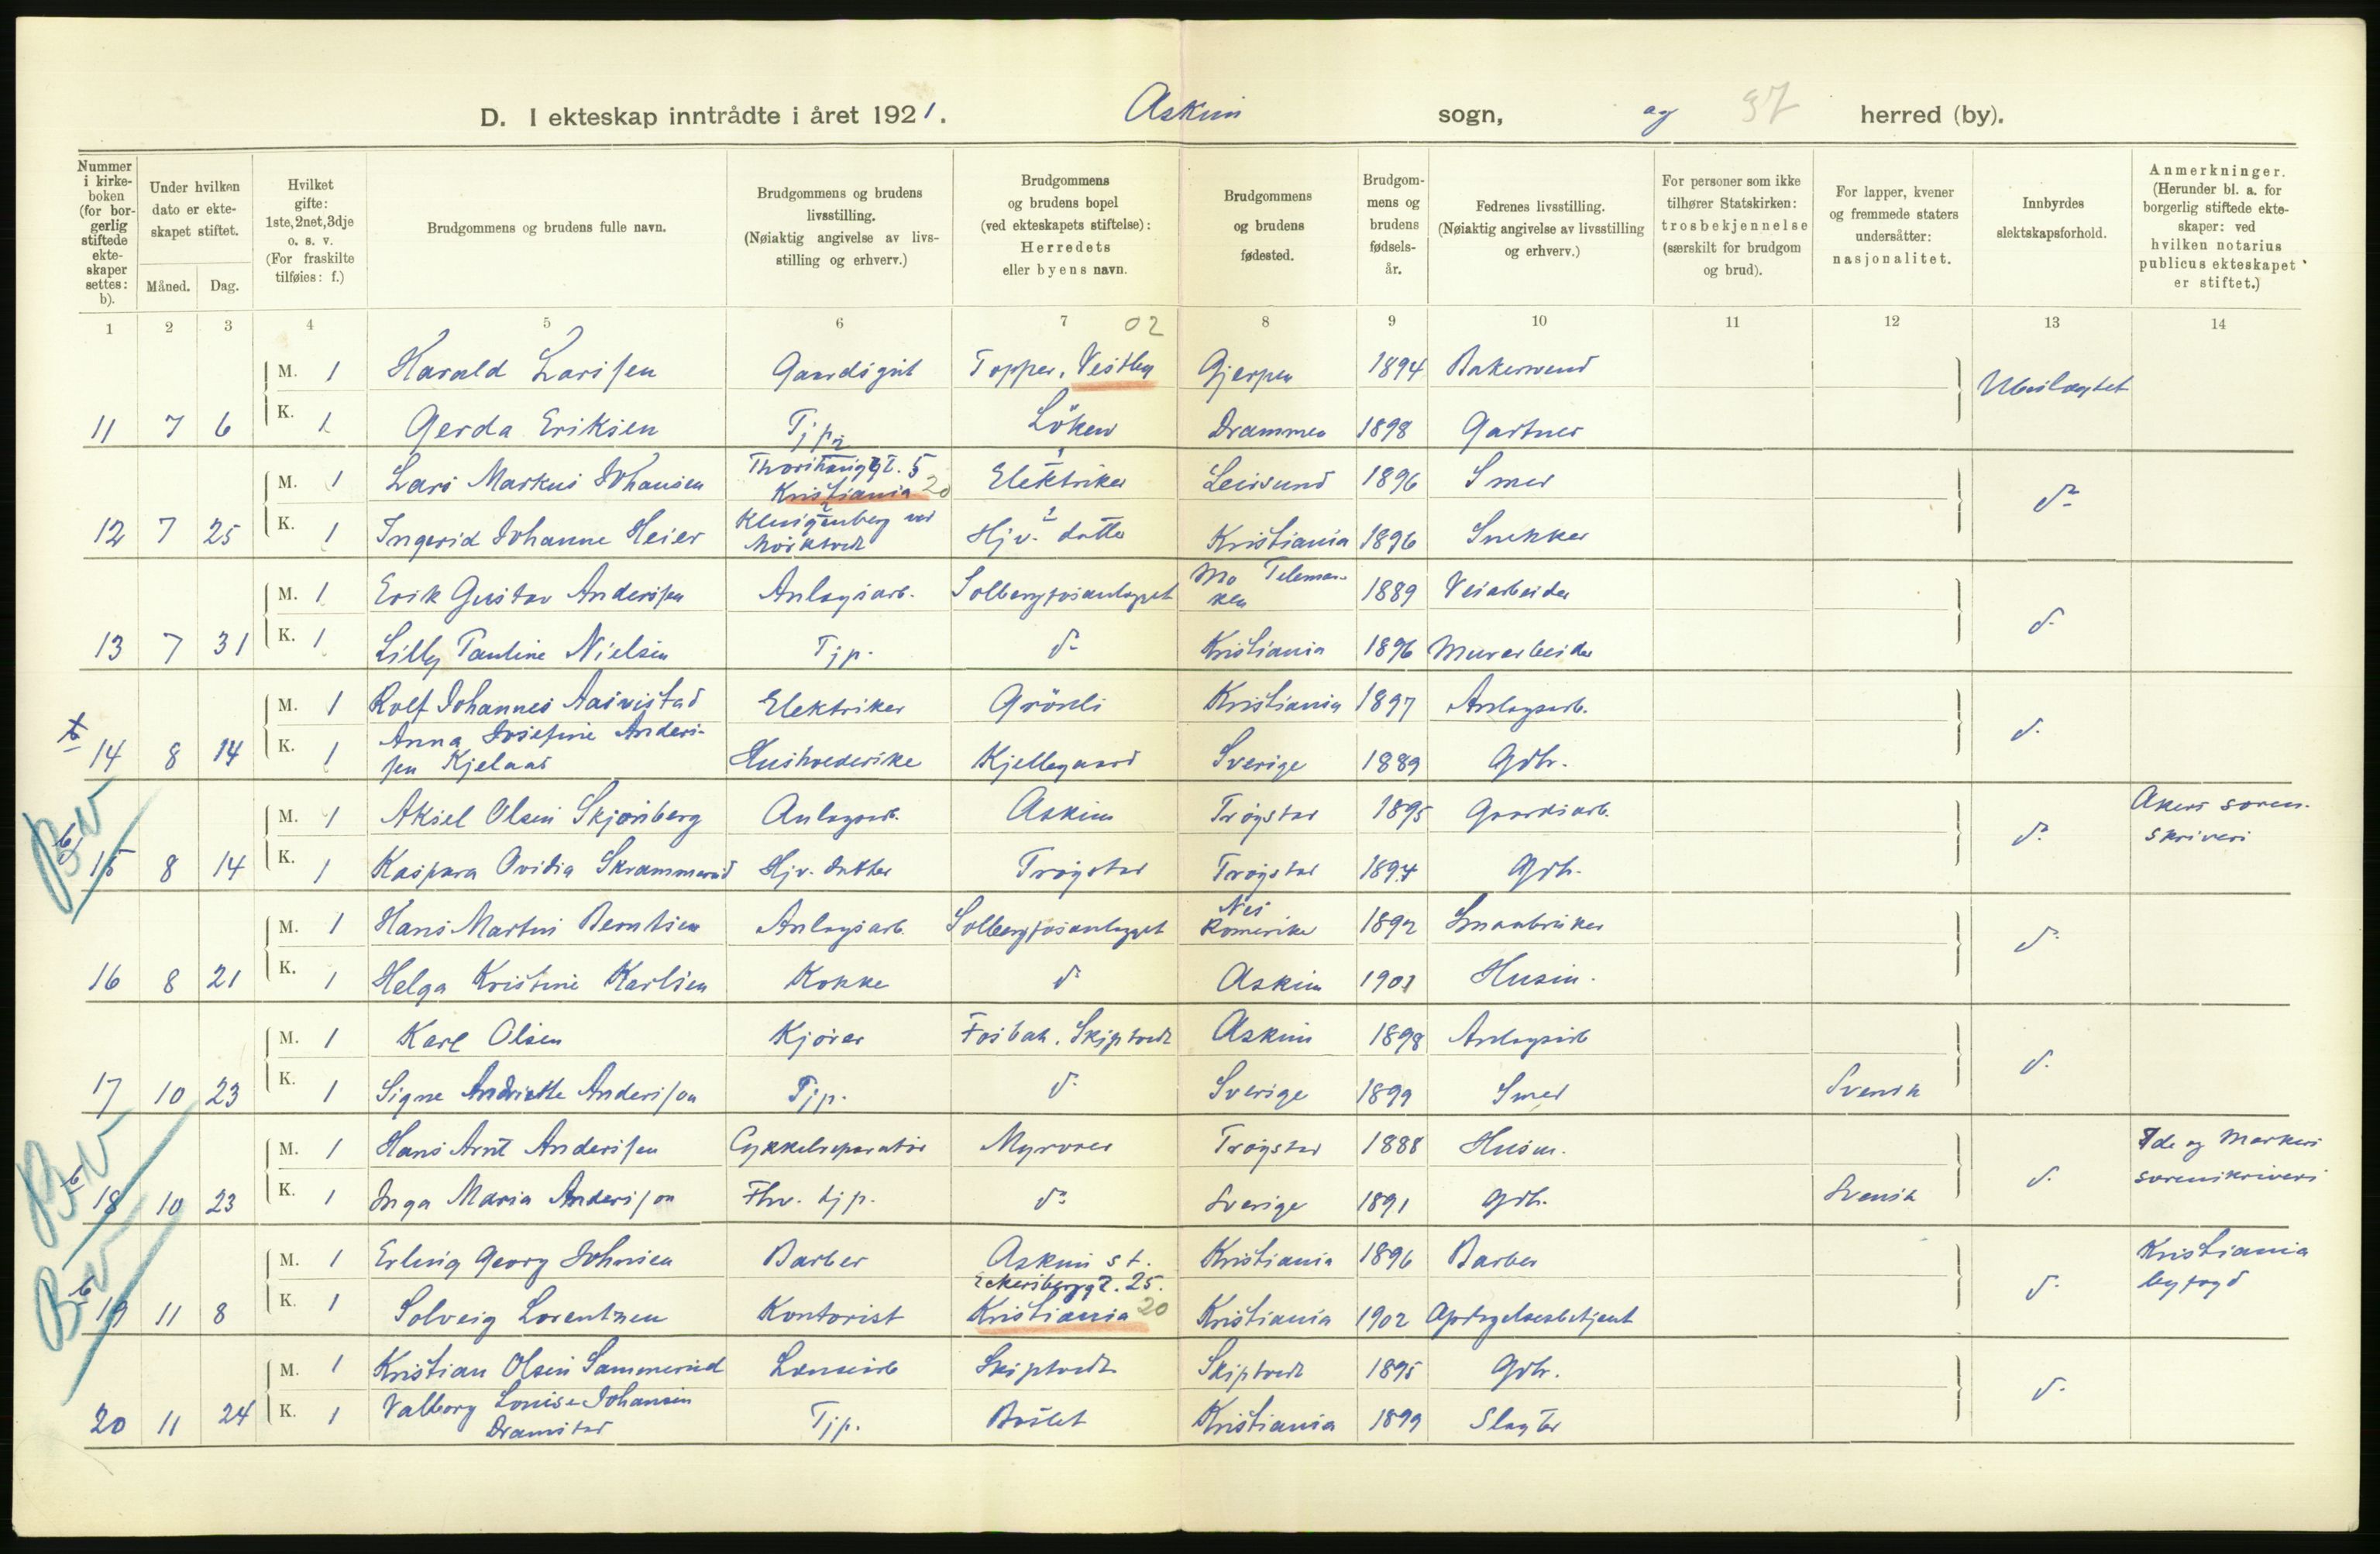 D. I ekteskap inntrådte i året 1921. Askim sogn, og 37 herred (by).
Nummer i kirkeboken (for borgerlig stiftede ekteskaper settes: b).
Under hvilken dato er ekteskapet stiftet.
Måned. Dag.
Hvilket gifte: 1ste, 2net, 3dje o. s. v. (For fraskilte tilføies: f.)
Brudgommens og brudens fulle navn.
Brudgommens og brudens livsstilling. (Nøiaktig angivelse av livsstilling og erhverv.)
Brudgommens og brudens bopel (ved ekteskapets stiftelse): Herredets eller byens navn.
Brudgommens og brudens fødested.
Brudgommens og brudens fødselsår.
Fedrenes livsstilling. (Nøiaktig angivelse av livsstilling og erhverv.)
For personer som ikke tilhører Statskirken: trosbekjennelse (særskilt for brudgom og brud).
For lapper, kvener og fremmede staters undersåtter: nasjonalitet.
Innbyrdes slektskapsforhold.
Anmerkninger. (Herunder bl. a. for borgerlig stiftede ekteskaper: ved hvilken notarius publicus ekteskapet er stiftet.)
1 2 3 4 5 6 7 02 8 9 10 11 12 13 14
M. 1 Harald Larssen Gaardsgut Topper, Vestby Gjerpen 1894 Ubeslægtet
11 7 6 K. 1 Gerda Eriksen Tjp. Löken Drammen 1898 Gartner
M. 1 Lars Markus Johansen Kristiania 20 Elektriker 1896 Smed d°
12 7 25 K. 1 Ingerid Johanne Heier Klingenberg ved Mörktvedt Hjv. datter Kristiania 1896 Snekker
M. 1 Erik Gustav Anderssen Anlægsarb. Solbergfosanlægget Mo Telemarken 1889 Veiarbeider d°
13 7 31 K. 1 Lilly Pauline Nielsen Tjp. d° Kristiania 1896 Murarbeider
M. 1 Rolf Johannes Aasvistad Elektriker Grönli Kristiania 1897 Anlægsarb. d°
b 14 8 14 K. 1 Anna Josefine Anderssen Kjelaas Husholderske Kjellegaard Sverige 1889 Gdbr.
M. 1 Aksel Olsen Skjønberg Anlægsarb. Askim Trøgstad 1895 Gaardsarb. d° Akers sorenskriveri
b 15 8 14 K. 1 Kaspara Ovidia Skrammerud Hjv. datter Trøgstad Trøgstad 1894 Gdb.
M. 1 Hans Martin Berntsen Anlægsarb. Solbergfosanlægget Nes Romerike 1892 Smaabruker d°
16 8 21 K. 1 Helga Kristine Karlsen Kokke d° Askim 1901 Husm.
M. 1 Karl Olsen Kjører Fosbak, Skiptvedt Askim 1898 Anlægsarb d°
17 10 23 K. 1 Signe Andriette Andersson Tjp. d° Sverige 1899 Smed Svensk
M. 1 Hans Arnt Anderssen Cykkelreparatør Myrover Trøgstad 1888 Husm. d° Ide og Markers sorenskriveri
b 18 10 23 K. 1 Inga Maria Andersson Fhv. tjp. d° Sverige 1891 Gdb. Svensk
M. 1 Erling Georg Johnsen Barber Askim st. Kristiania 1896 Barber d° Kristiania byfogd
b 19 11 8 K. 1 Solveig Lorentzen Kontorist Eckersbergsgt. 25. Kristiania 20 Kristiania 1902
M. 1 Kristian Olsen Sammerud Skiptvedt Skiptvedt 1895 Gdb. d°
20 11 24 K. 1 Valborg Louise Johansen Dramstad Tjp. Kristiania 1899 Slagter